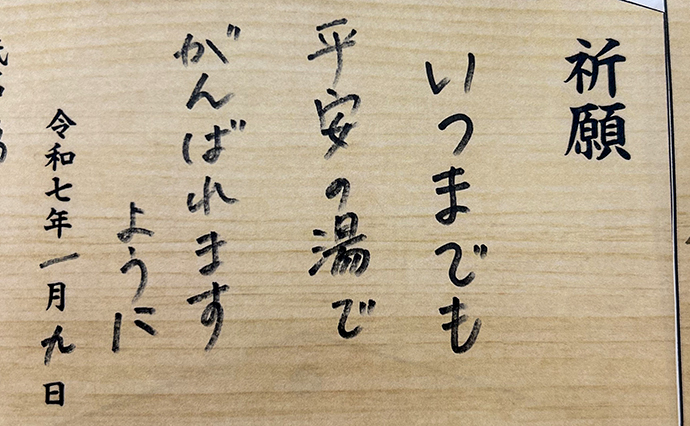 祈願
いつまでも
平安の湯で
がんばれます
ように
令和七年一月九日